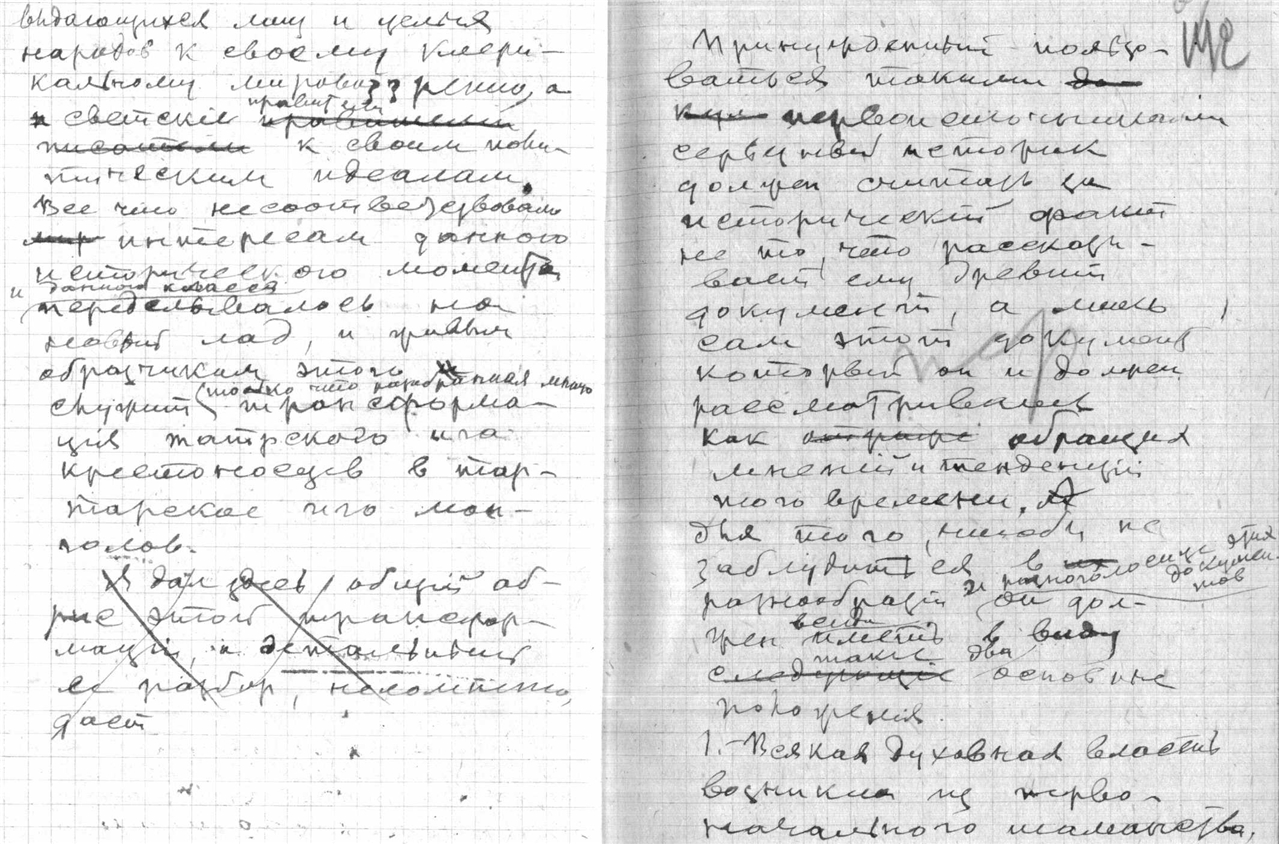 выдающихся лиц и целых
народов к своему клери-
кальному мировоззрению, а
и светские правители
правители
писатели к своим поли-
тическим идеалам.
Все что несоответствовало
интересам данного
исторического момента
и данного класса
переделывалось на
новый лад, и живым
образчиком этого
(только что разобранная мною
служит трансформа-
ция татрского ига
крестоносцев в тар-
тарское иго мон-
голов.
Я дал здесь общий аб-
рис этой трансфор-
мации, а детальный
ее разбор, несомненно,
даст
Принужденный пользо-
ваться такими
первоисточниками
серьезный историк
должен считать за
исторический факт
не то, что рассказы-
вает ему древний
документ, а лишь
сам этот документ
который он и должен
рассматривать
как образцы
мнений и тенденций
того времени.
Для того, чтобы не
заблудиться в
и разноголосице этих
докумен-
тов
разнообразии он дол-
жен иметь в виду
всегда
такие два
следующие основные
положения.
1.-Всякая духовная власть
возникла из перво-
начального шаманства,